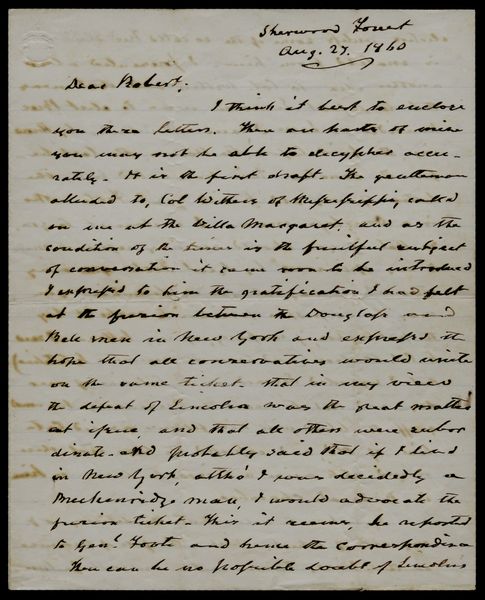 Sherwood Forest
Aug. 27. 1860
Dear Robert,
I think it best to enclose
you these letters. There are parts of mine
you may not be able to decypher accu-
rately. It is the first draft. The gentleman
alluded to, Col Withers of Mississippi, called
on me at the Villa Margaret, and as the
condition of the times is the fruitful subject
of conversation it came soon to be introduced
I express'd to him the gratification I had felt
at the fusion between the Douglass and
Bell men in New York and express'd the
hope that all conservatives would unite
on the same ticket. that in my view
the defeat of Lincoln was the great matter
at issue, and that all others were subor
dinate. and probably said that if I lived
in New York, altho' I was decidedly a
Breckenridge man, I would advocate the
fusion ticket. This it seems, he reported
to Genl. Foote and hence the correspondence
There can be no possible doubt of Lincolns